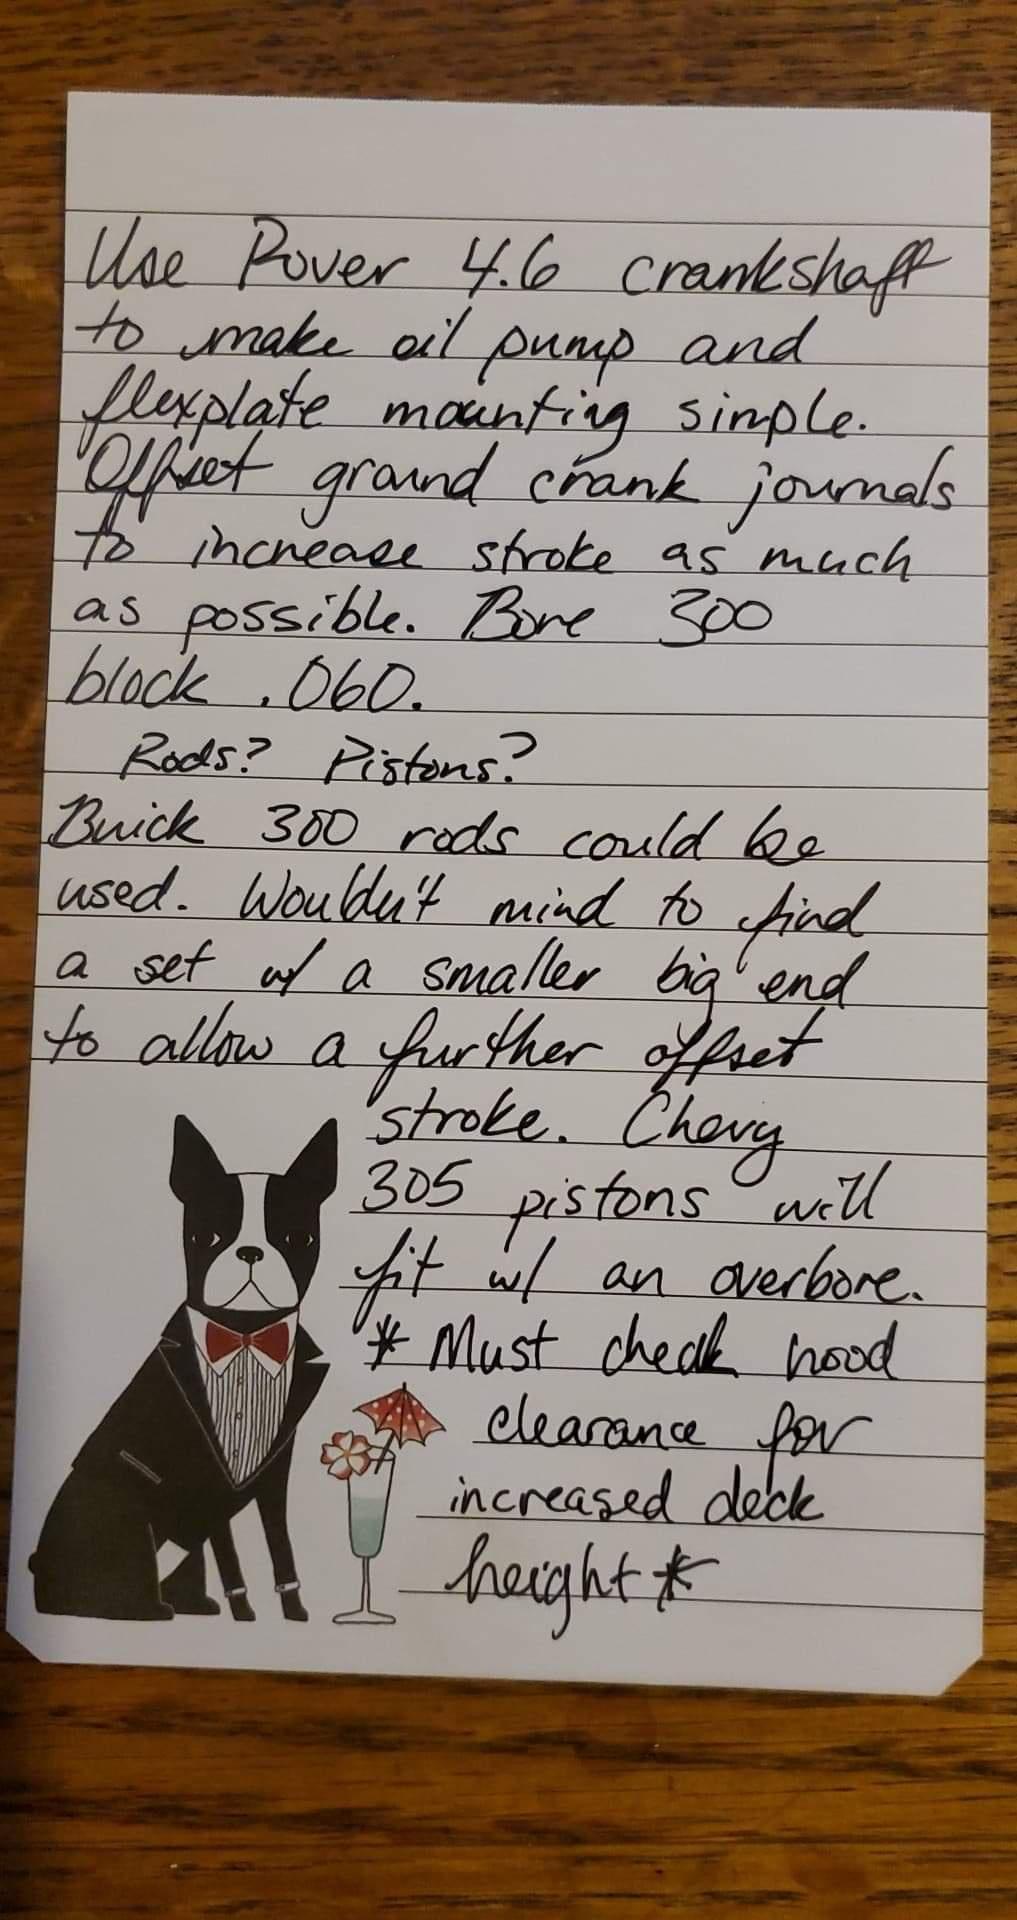 Use Rover 4.6 crankshaft
to make oil pump and
flexplate mounting simple.
Offset ground crank journals
to increase stroke as much
as possible. Bore 300
block .060.
Rods? Pistons?
Buick 300 rods could be
used. Wouldn't mind to find
a set w/ a smaller big end
to allow a further offset
stroke. Chevy
305 pistons will
fit w/ an overbore.
* Must check hood
clearance for
increased deck
height *